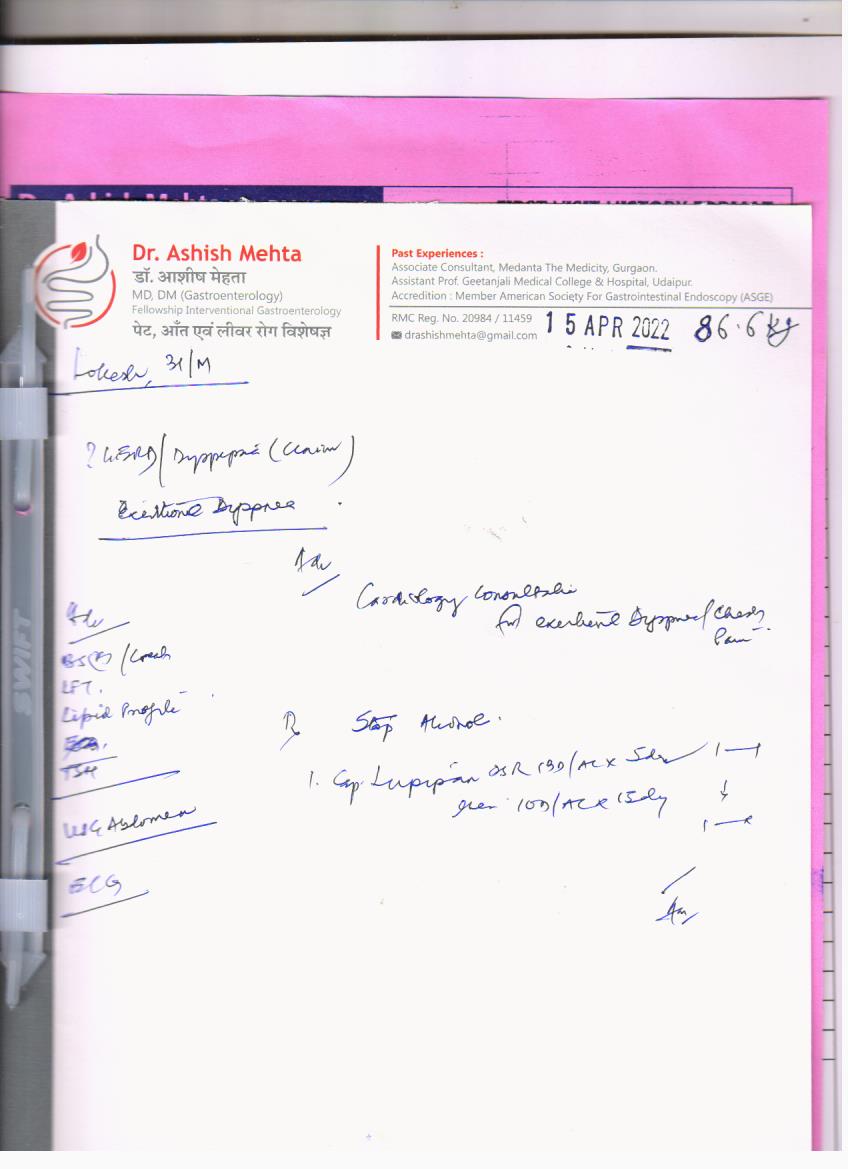 Dr. Ashish Mehta
डॉ. आशीष मेहता
MD, DM (Gastroenterology)
Fellowship Interventional Gastroenterology
पेट, आँत एवं लीवर रोग विशेषज्ञ
Past Experiences :
Associate Consultant, Medanta The Medicity, Gurgaon.
Assistant Prof. Geetanjali Medical College & Hospital, Udaipur.
Accredition : Member American Society For Gastrointestinal Endoscopy (ASGE)
RMC Reg. No. 20984 / 11459
drashishmehta@gmail.com
15 APR 2022 86.6 kg
Lokesh, /M
? GERD/Dyspepsia
Exertional Dyspnea
Adv
Cardiology Consultation
for exertional Dyspnea/Chest
Pain
Adv
LFT.
Lipid Profile
TSH
USG Abdomen
ECG
Stop Alcohol.
1. Cap. DSR 1BD/AC x 5day
then 1OD/AC x 15day
SWIFT